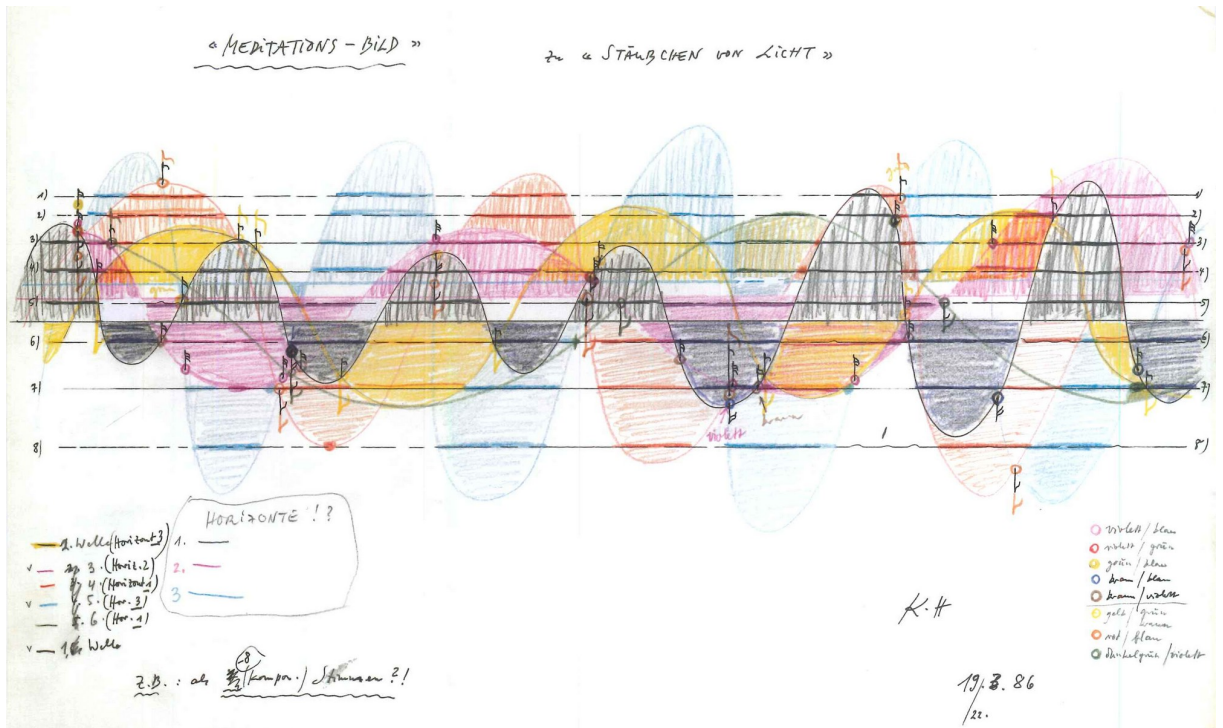 « MEDITATIONS - BILD »
zu « STÄUBCHEN VON LICHT »
1)
2)
3)
4)
5)
6)
7)
8)
1)
2)
3)
4)
5)
6)
7)
8)
grün
violett
braun
2. Welle (Horizont 3)
v 3. (Horiz. 2)
4. (Horizont 1)
v 5. (Hor. 3)
6. (Hor. 1)
v 1. Welle
HORIZONTE !?
1.
2.
3
Z.B. : als 8 (kompon.) Stimmen ?!
K.H
19. 3. 86
/22.
violett / blau
violett / grün
grün / blau
braun / blau
braun / violett
gelb / grün
braun
rot / blau
dunkelgrün / violett